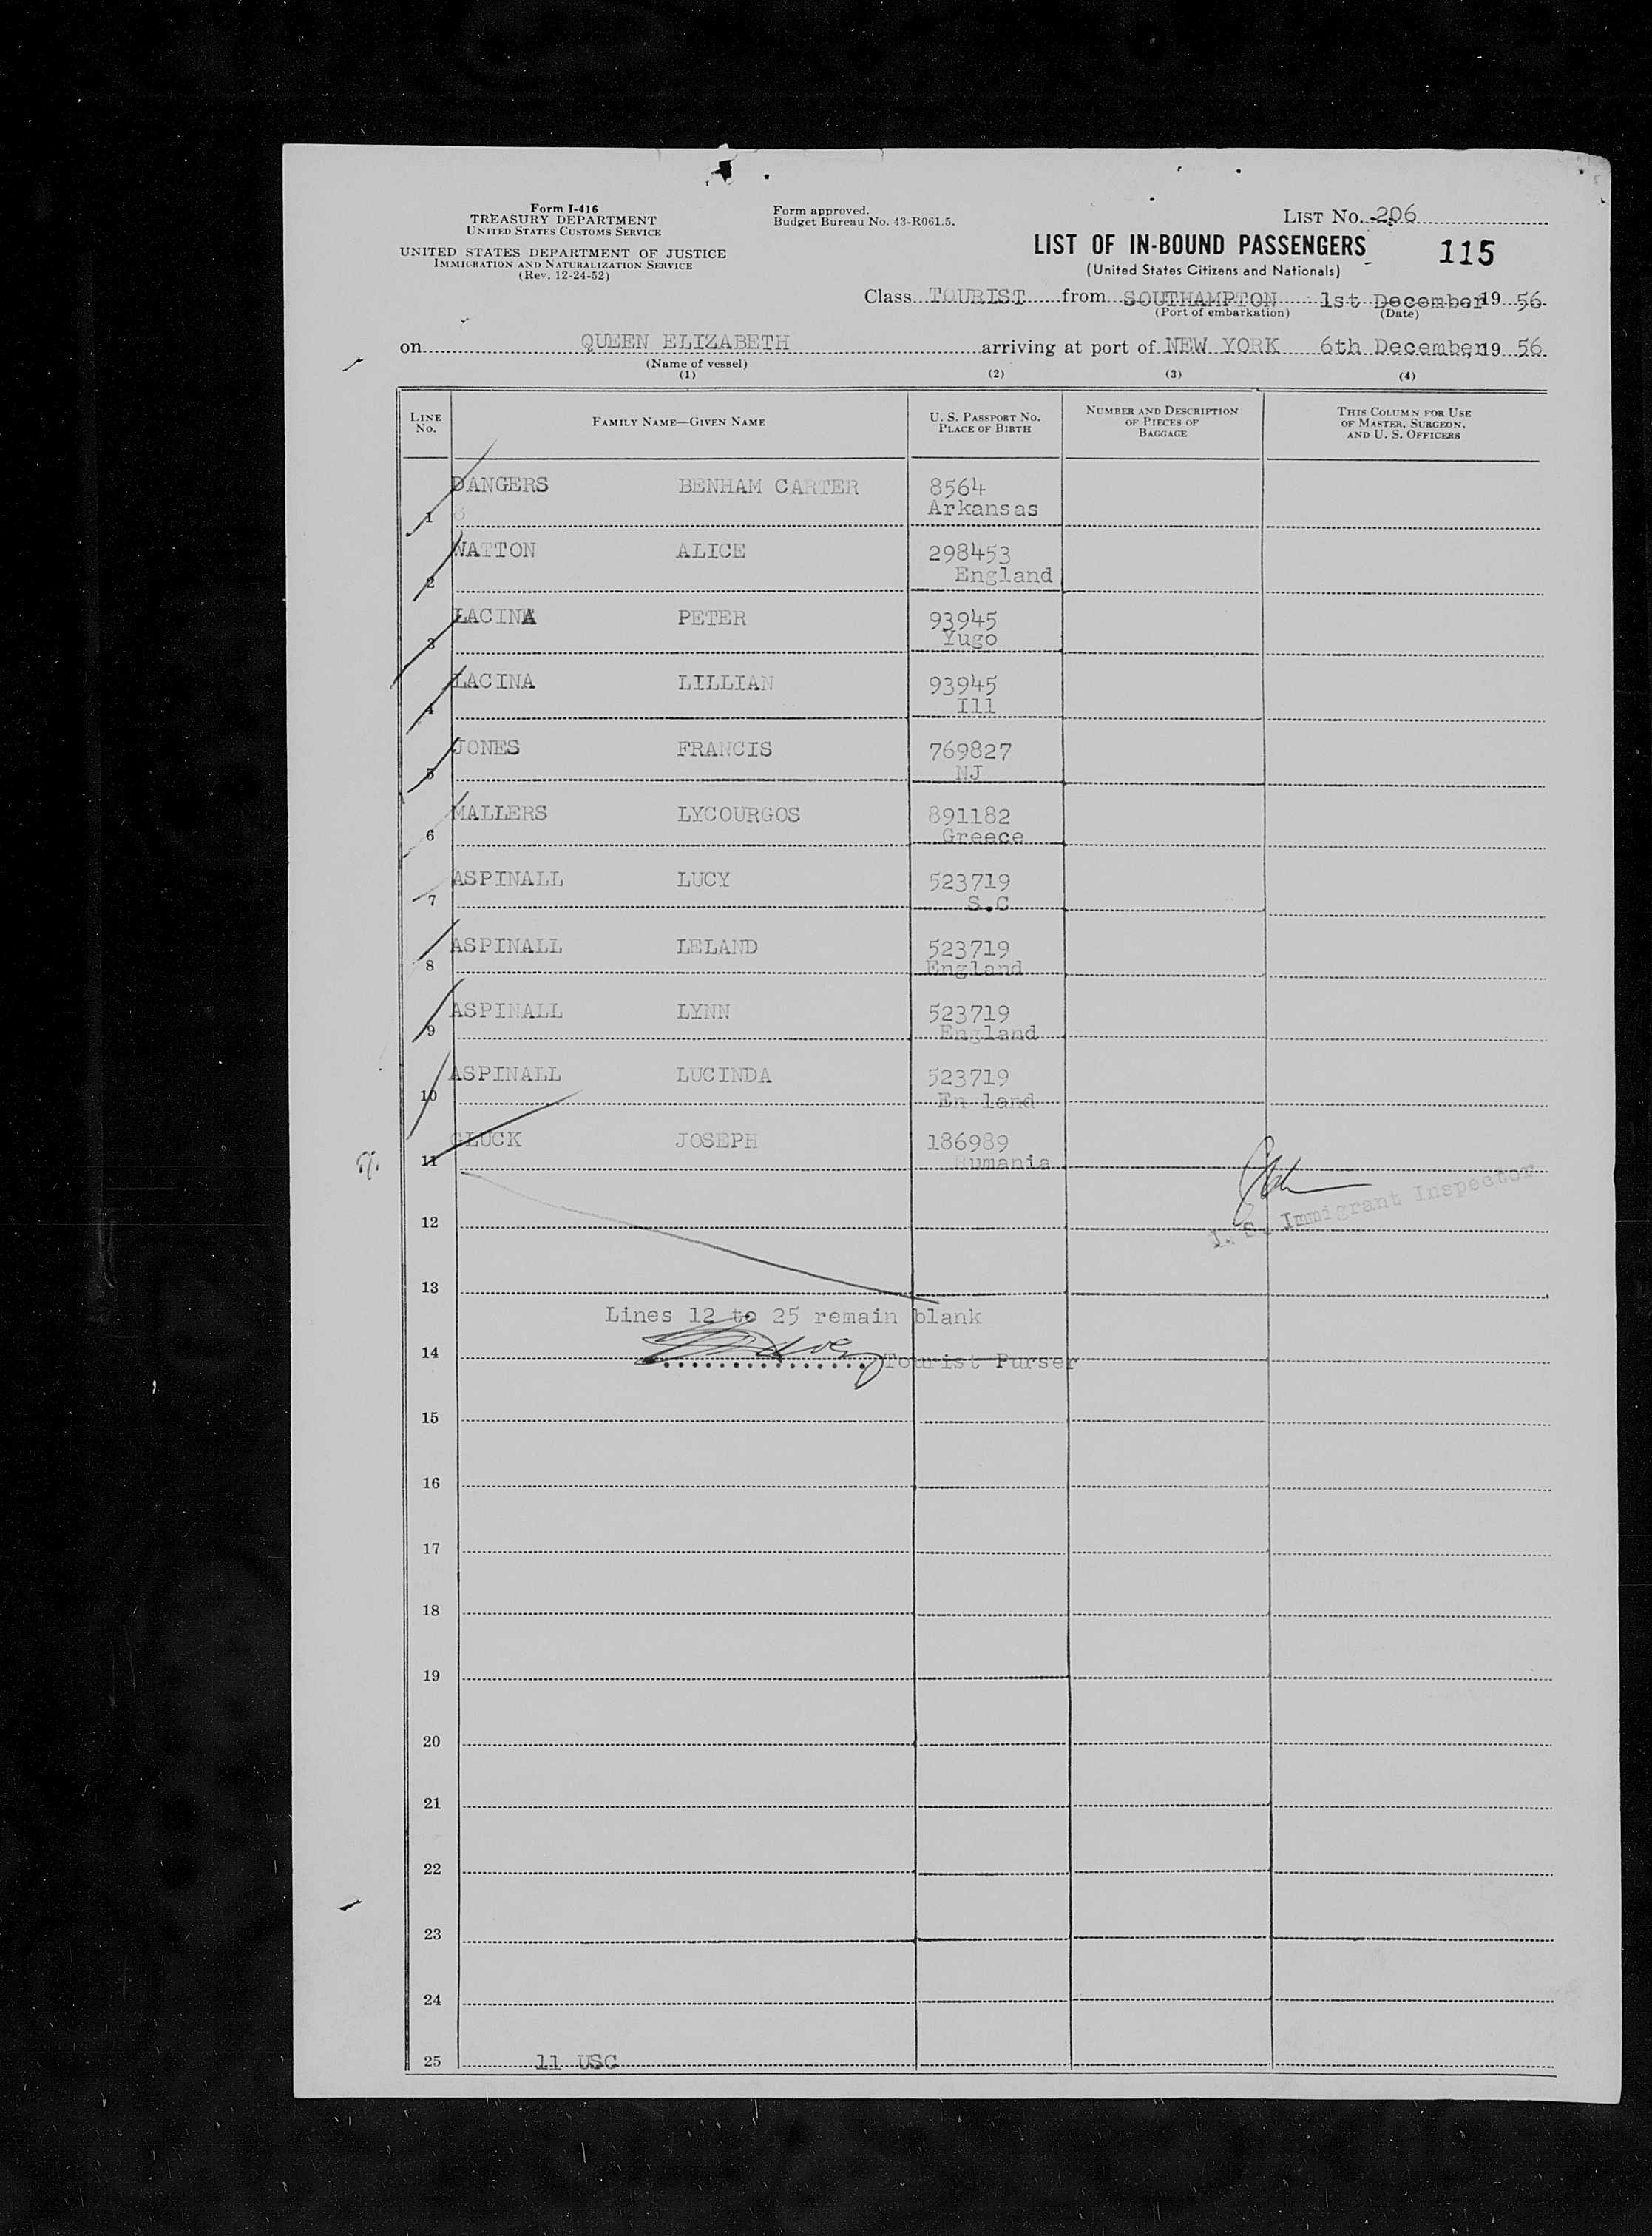 Form I-416
TREASURY DEPARTMENT
UNITED STATES CUSTOMS SERVICE
UNITED STATES DEPARTMENT OF JUSTICE
IMMIGRATION AND NATURALIZATION SERVICE
(Rev. 12-24-52)
Form approved.
Budget Bureau No. 43-R061.5.
LIST No. 206
LIST OF IN-BOUND PASSENGERS 115
(United States Citizens and Nationals)
Class TOURIST from SOUTHAMPTON 1st December 19 56
(Port of embarkation) (Date)
on QUEEN ELIZABETH arriving at port of NEW YORK 6th December, 19 56
(Name of vessel)
(1) (2) (3) (4)
LINE No. FAMILY NAME—GIVEN NAME U. S. PASSPORT No. PLACE OF BIRTH NUMBER AND DESCRIPTION OF PIECES OF BAGGAGE THIS COLUMN FOR USE OF MASTER, SURGEON, AND U. S. OFFICERS
DANGERS BENHAM CARTER 8564
1 8 Arkansas
WATTON ALICE 298453
2 England
LACINA PETER 93945
3 Yugo
LACINA LILLIAN 93945
4 Ill
JONES FRANCIS 769827
5 NJ
MALLERS LYCOURGOS 891182
6 Greece
ASPINALL LUCY 523719
7 S.C
ASPINALL LELAND 523719
8 England
ASPINALL LYNN 523719
9 England
ASPINALL LUCINDA 523719
10 En land
GLUCK JOSEPH 186989
11 Rumania
Immigrant Inspector
12
13
Lines 12 to 25 remain blank
14 Tourist Purser
15
16
17
18
19
20
21
22
23
24
25 11 USC